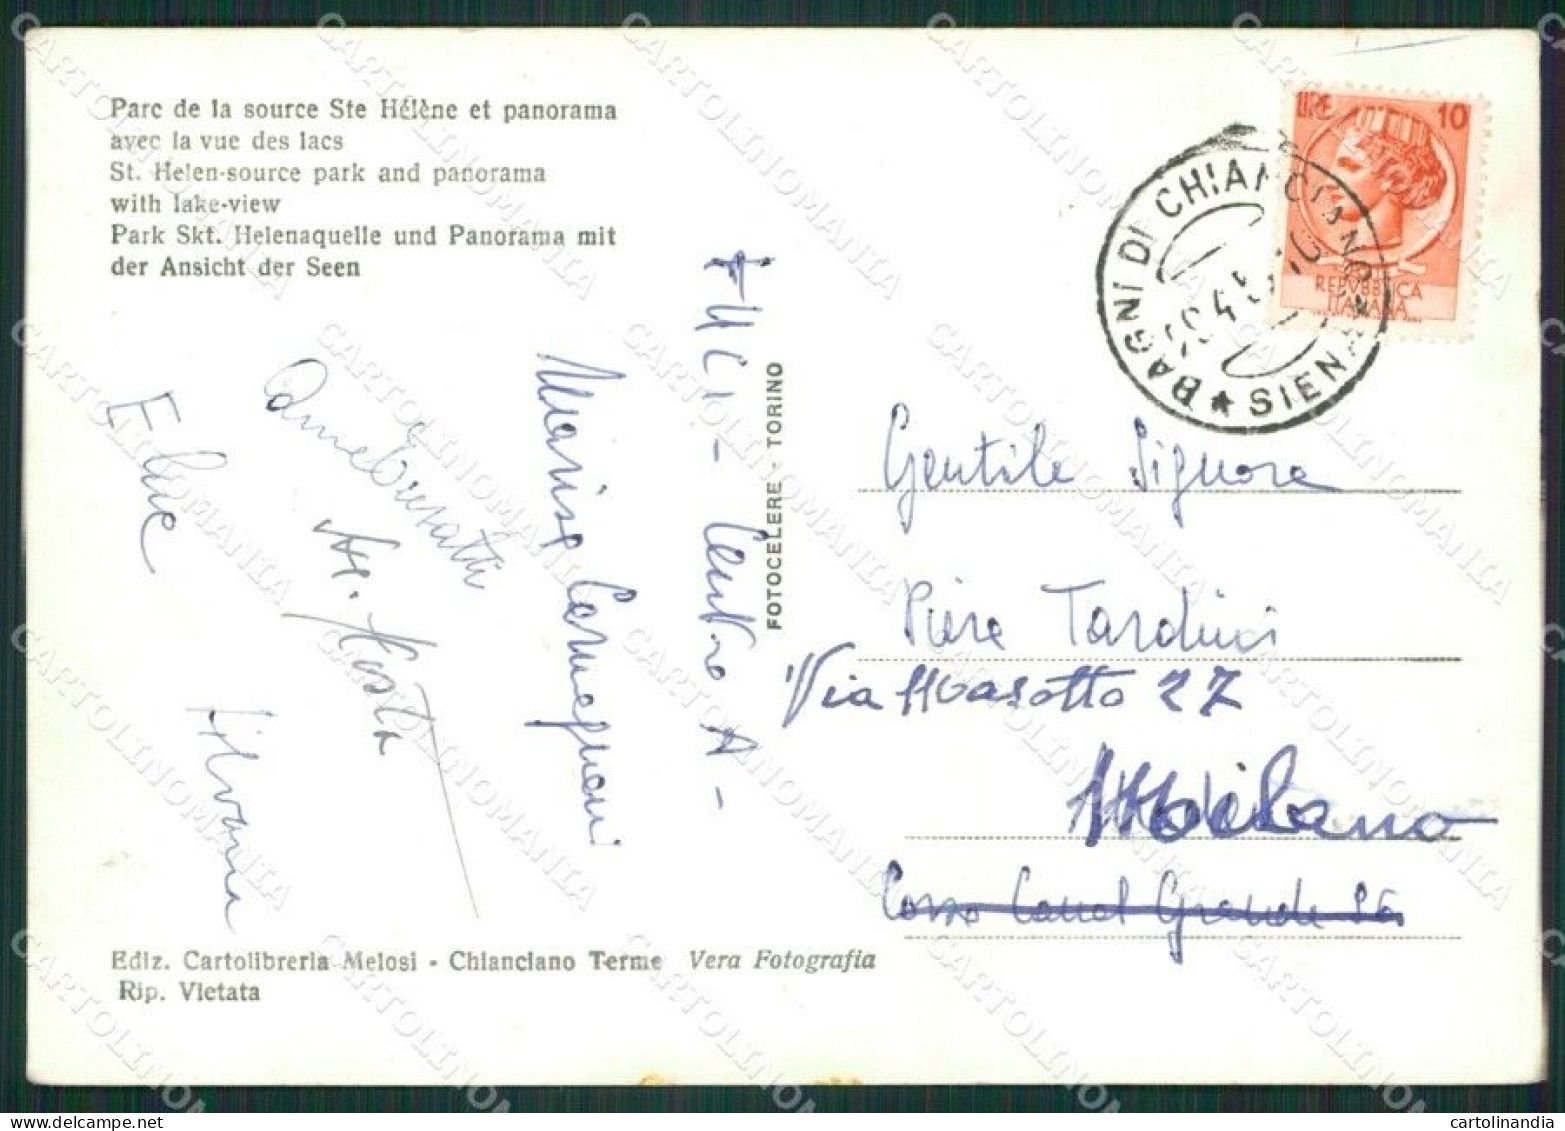 Parc de la source Ste Hélène et panorama
avec la vue des lacs
St. Helen-source park and panorama
with lake-view
Park Skt. Helenaquelle und Panorama mit
der Ansicht der Seen
LIRE 10
REPVBBLICA
ITALIANA
BAGNI DI CHIANCIANO
★ SIENA
FUCI - Centro A -
FOTOCELERE - TORINO
Gentile Signora
Piera Tarduci
Via Masotto 27
Milano
Corso Canal Grande
Silvana
Ediz. Cartolibreria Melosi - Chianciano Terme Vera Fotografia
Rip. Vietata
CARTOLINOMANIA
cartolinandia